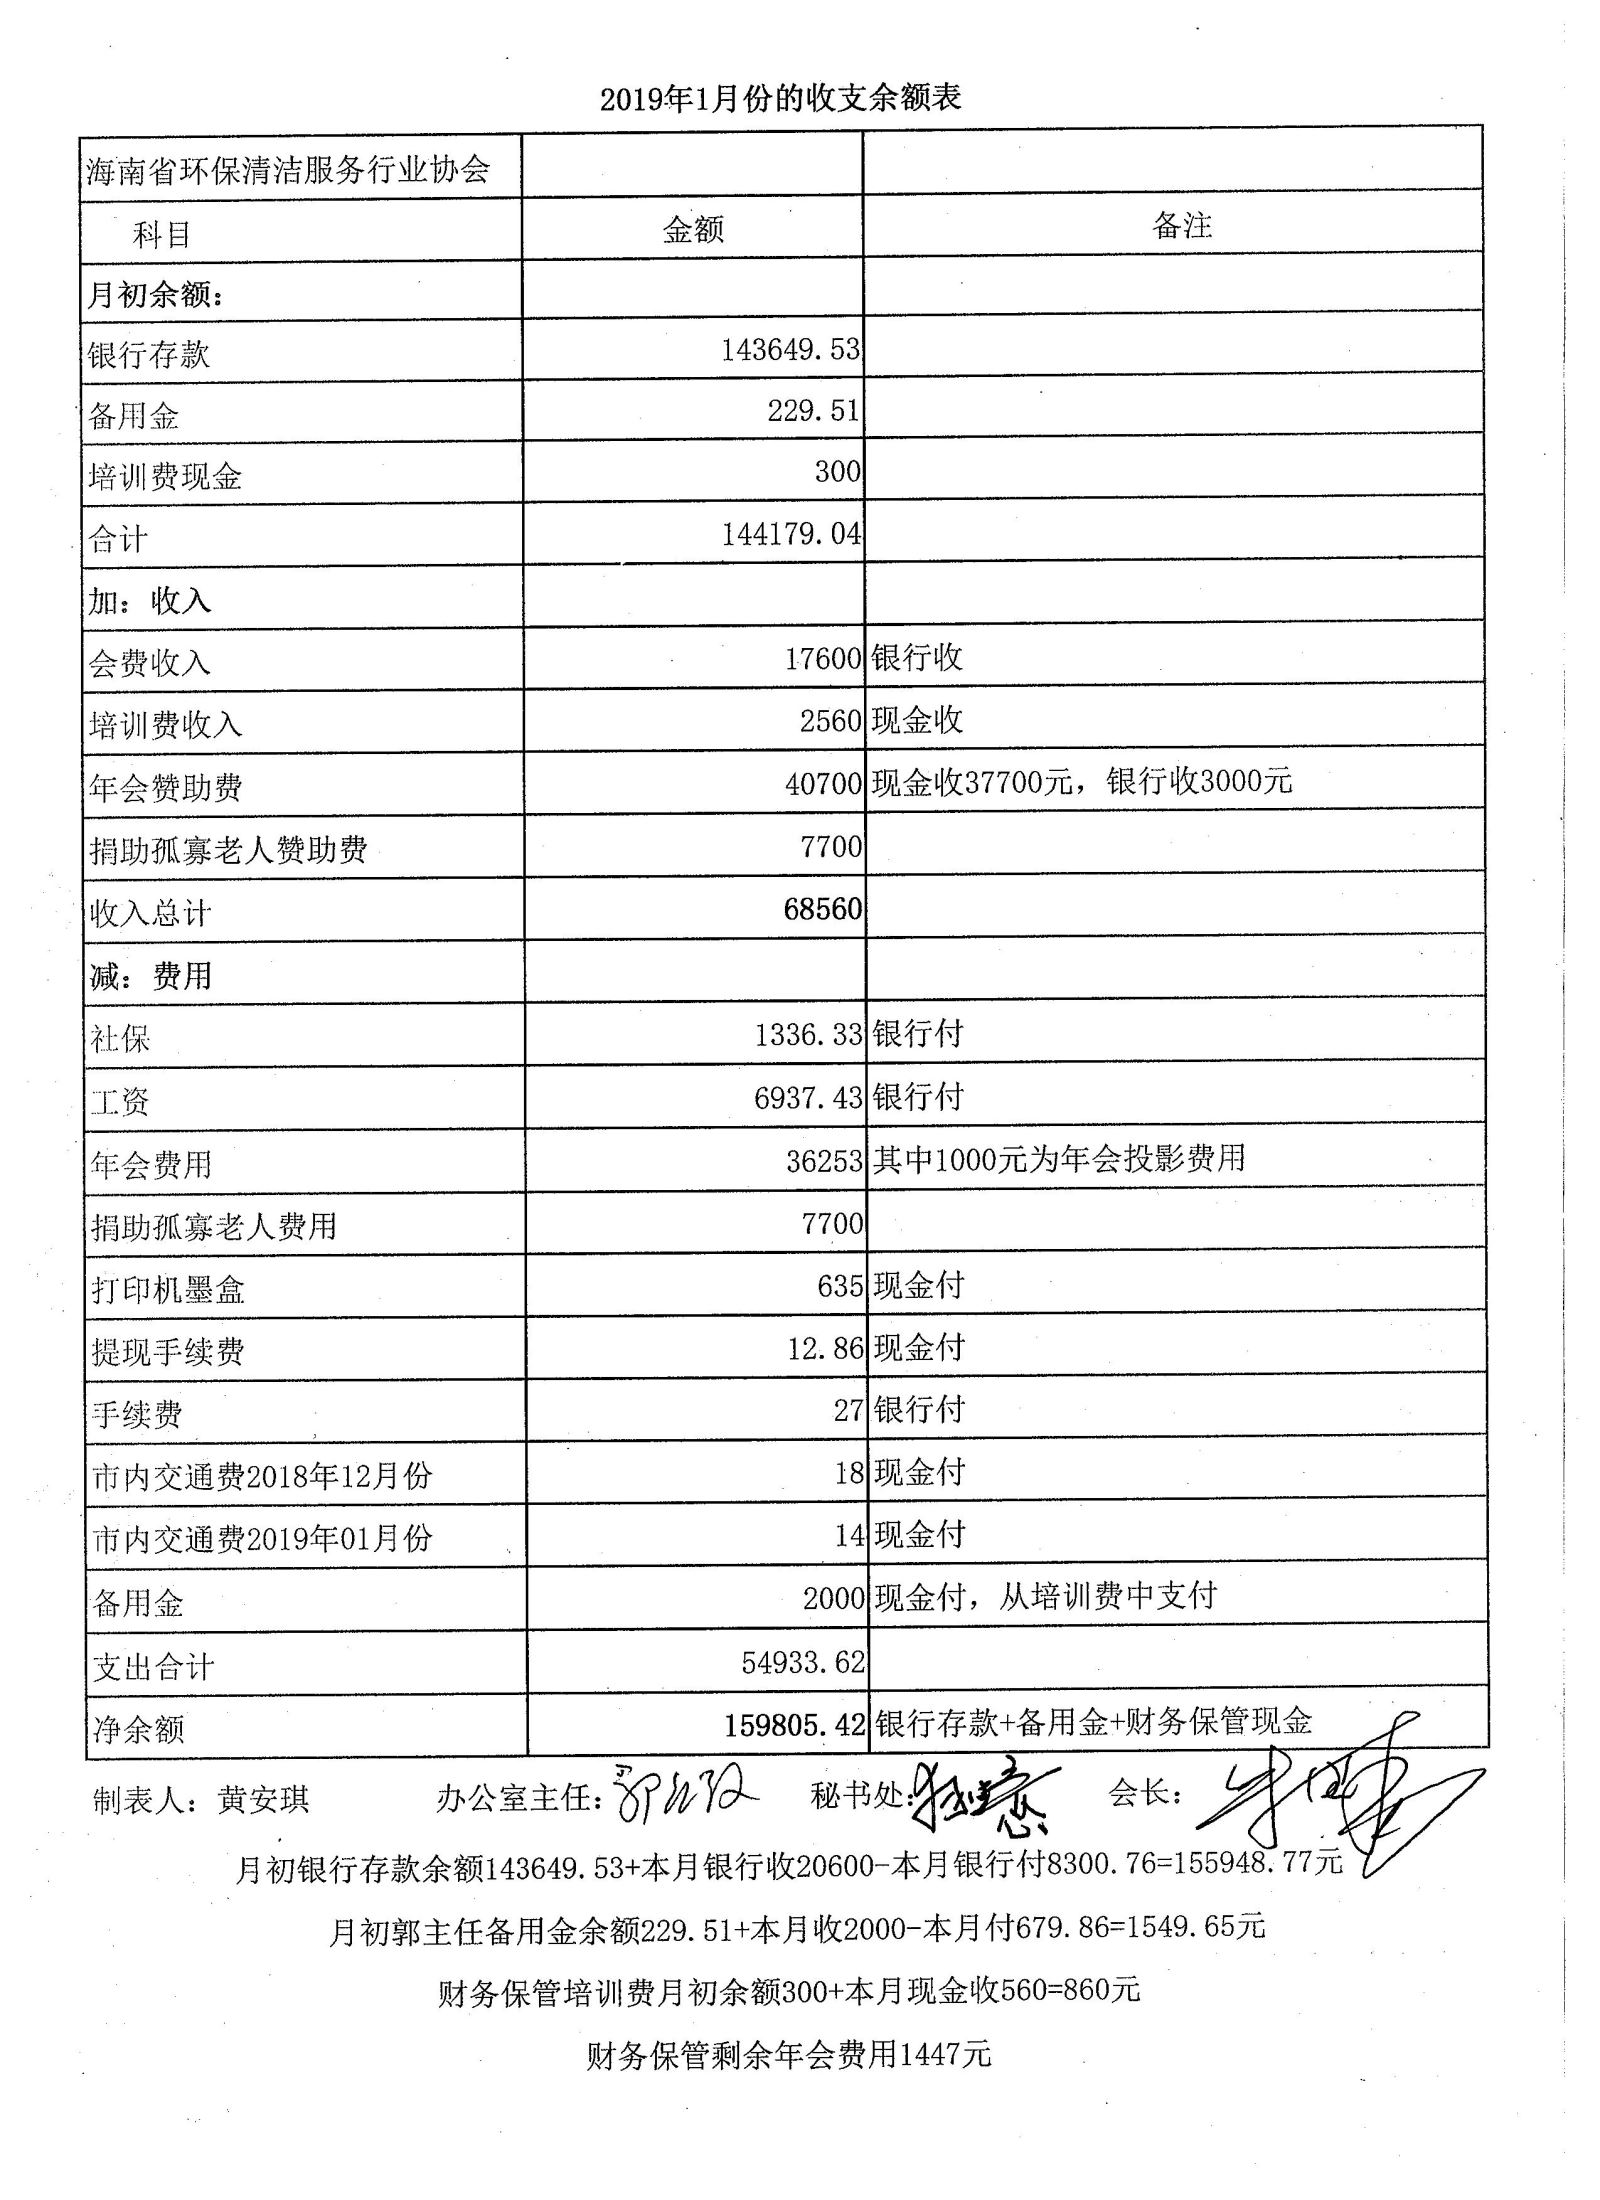 2019年1月份的收支余额表
海南省环保清洁服务行业协会
科目 金额 备注
月初余额：
银行存款 143649.53
备用金 229.51
培训费现金 300
合计 144179.04
加：收入
会费收入 17600 银行收
培训费收入 2560 现金收
年会赞助费 40700 现金收37700元，银行收3000元
捐助孤寡老人赞助费 7700
收入总计 68560
减：费用
社保 1336.33 银行付
工资 6937.43 银行付
年会费用 36253 其中1000元为年会投影费用
捐助孤寡老人费用 7700
打印机墨盒 635 现金付
提现手续费 12.86 现金付
手续费 27 银行付
市内交通费2018年12月份 18 现金付
市内交通费2019年01月份 14 现金付
备用金 2000 现金付，从培训费中支付
支出合计 54933.62
净余额 159805.42 银行存款+备用金+财务保管现金
制表人：黄安琪 办公室主任： 秘书处： 会长：
月初银行存款余额143649.53+本月银行收20600-本月银行付8300.76=155948.77元
月初郭主任备用金余额229.51+本月收2000-本月付679.86=1549.65元
财务保管培训费月初余额300+本月现金收560=860元
财务保管剩余年会费用1447元